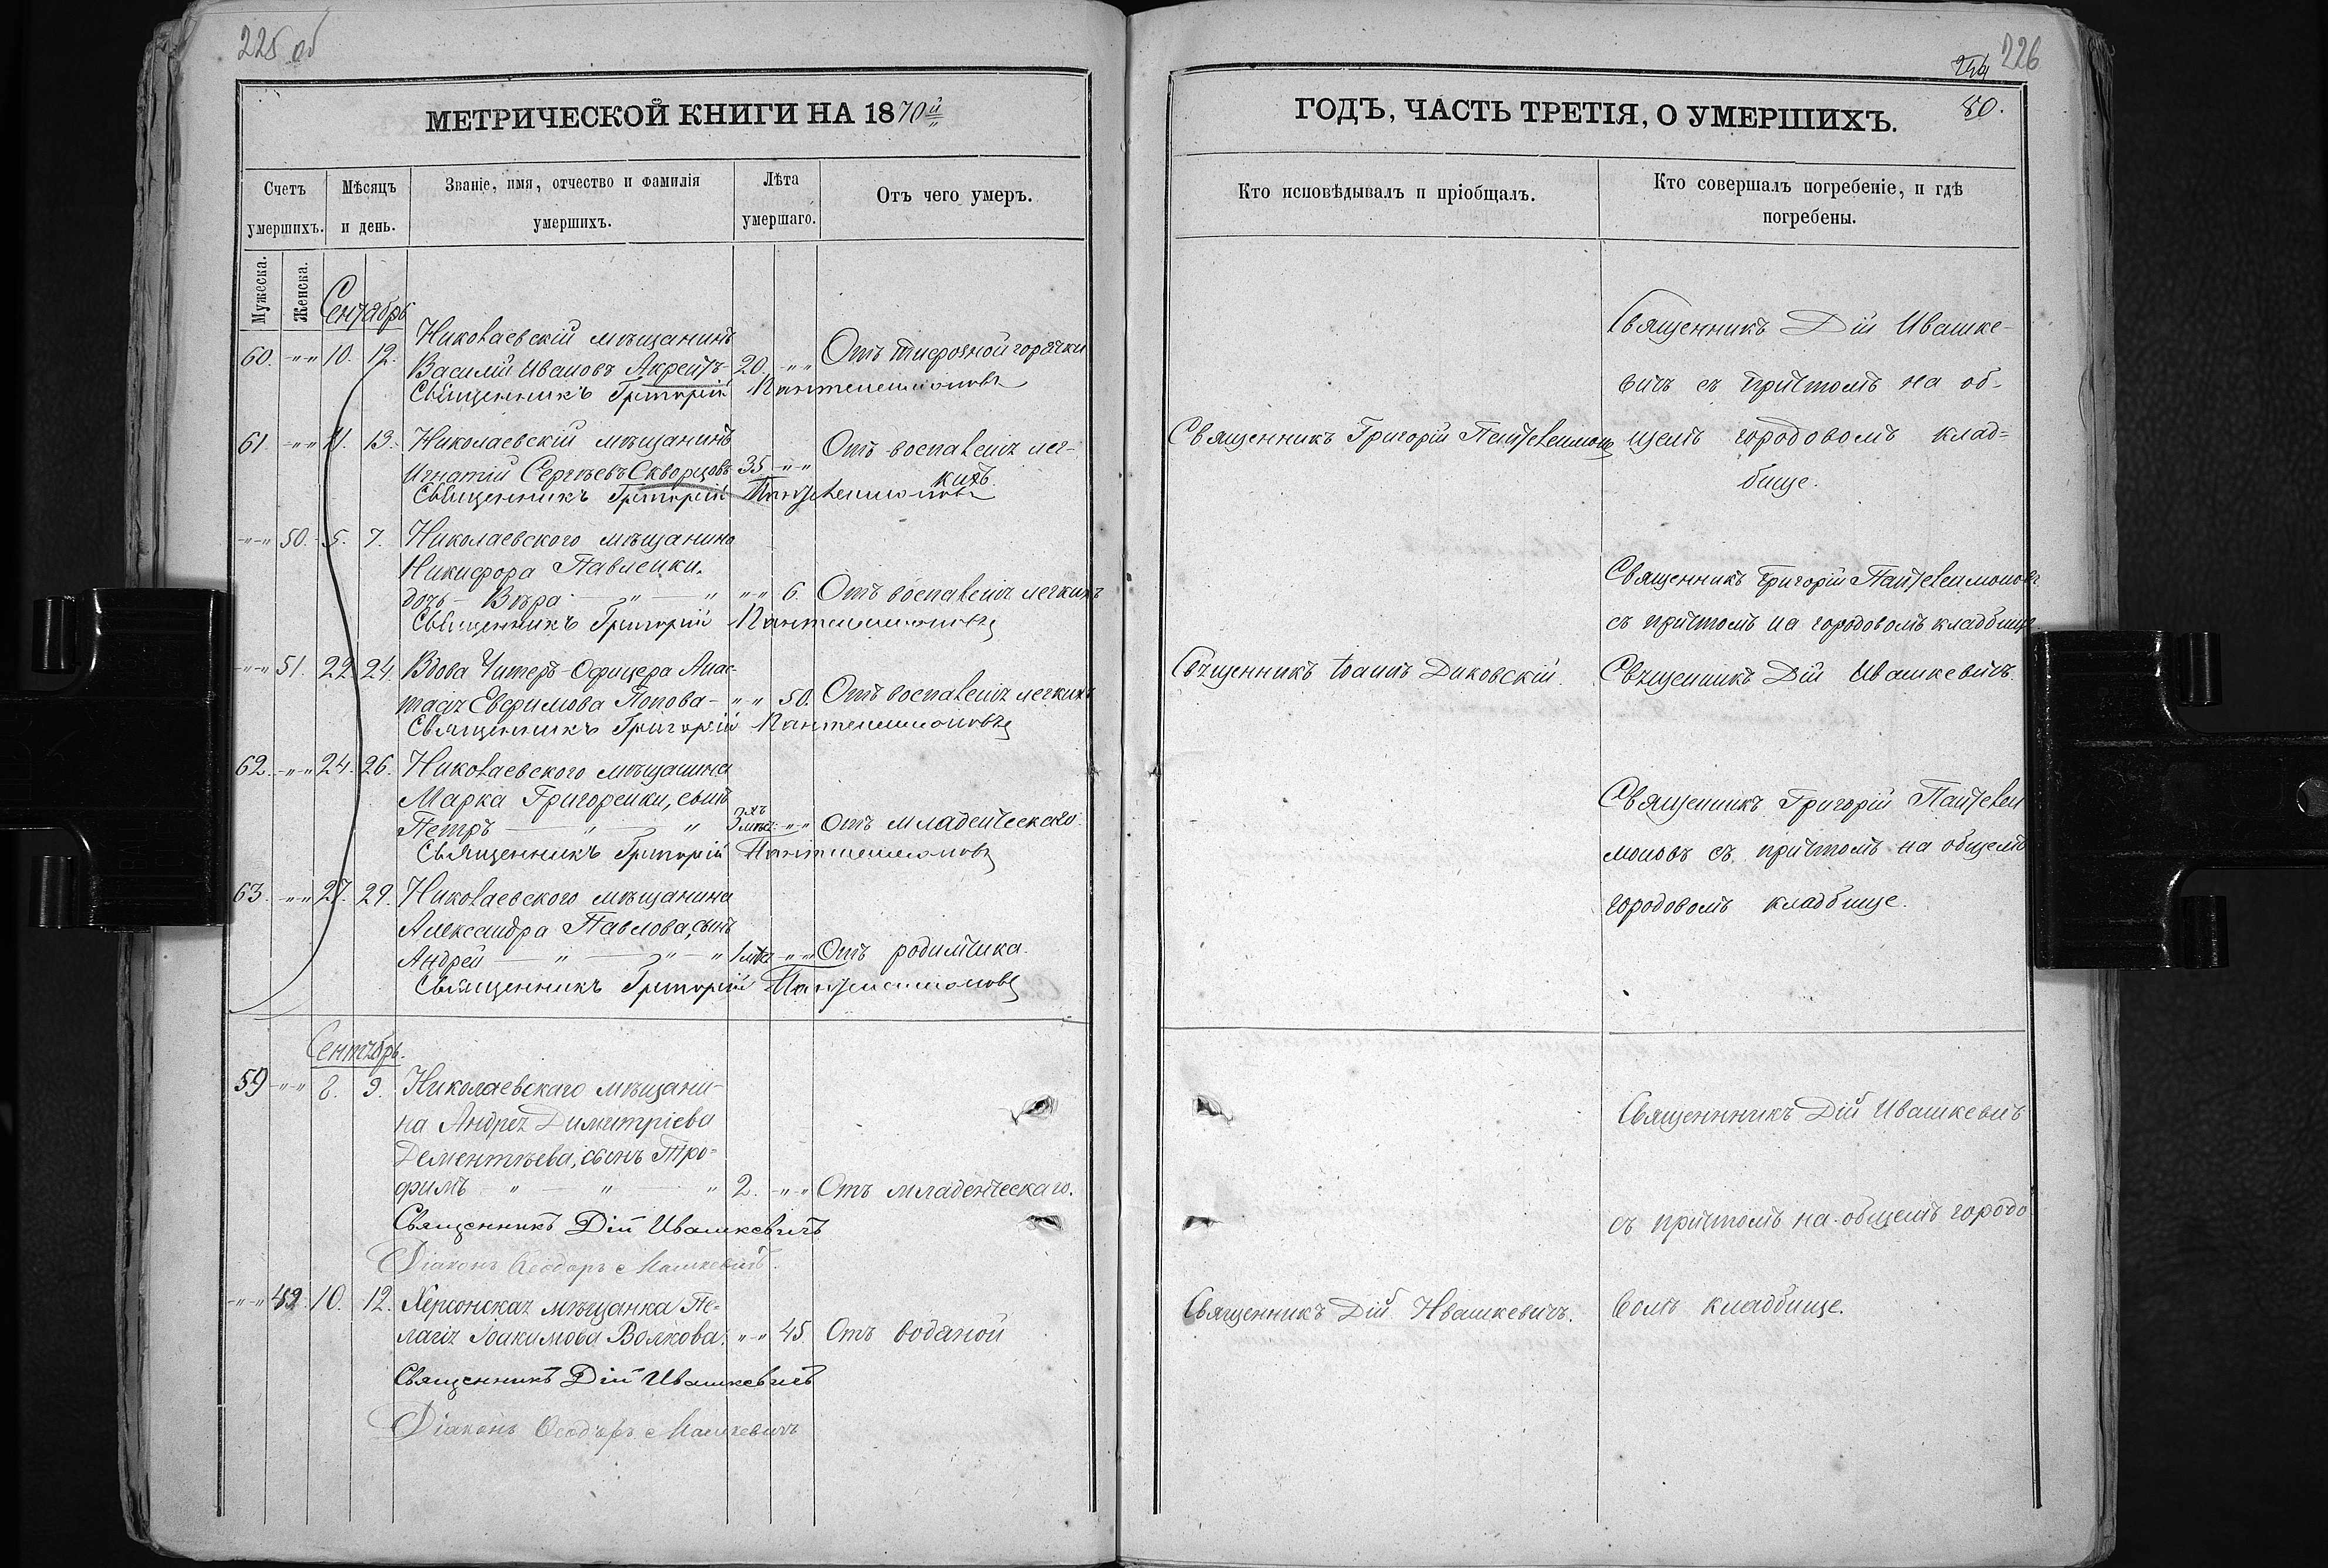 225 об
МЕТРИЧЕСКОЙ КНИГИ НА 1870й
Счетъ умершихъ.
Мѣсяцъ и день.
Званіе, имя, отчество и фамилія умершихъ.
Лѣта умершаго.
Отъ чего умеръ.
Мужеска.
Женска.
Сентябрь
Николаевскій мѣщанинъ
60. -"-" 10. 12. Василій Ивановъ 20 " " Отъ тифозной горячки
Священникъ Григорій Пантелеимоновъ
61. -"-" 11. 13. Николаевскій мѣщанинъ Отъ воспаленія лег-
Игнатій Сергѣевъ Скворцовъ 35 " " кихъ.
Священникъ Григорій Пантелеимоновъ
-"-" 50. 5. 7. Николаевского мѣщанина
Никифора Павленки,
дочь - Вѣра - " - " " " 6 Отъ воспаленія легкихъ
Священникъ Григорій Пантелеимоновъ
-"-" 51. 22. 24. Вдова Унтеръ-Офицера Анас-
тасія Евфимова Попова - " " 50. Отъ воспаленія легкихъ
Священникъ Григорій Пантелеимоновъ
62. -"-" 24. 26. Николаевского мѣщанина
Марка Григоренки, сынъ
Петръ - " - " 3 хъ мѣс. " " Отъ младенческого.
Священникъ Григорій Пантелеимоновъ
63. -"-" 27. 29. Николаевского мѣщанина
Александра Павлова, сынъ
Андрей - " - " - " " " Отъ родимчика.
Священникъ Григорій Пантелеимоновъ
Сентябрь.
59 -"-" 8. 9. Николаевскаго мѣщани-
на Андрея Димитріева
Дементьева, сынъ Тро=
фимъ " - " - " 2. -"-" Отъ младенческаго.
Священникъ Дій Ивашкевичъ
Діаконъ Ѳеодоръ Машкевичъ.
-"-" 49. 10. 12. Херсонская мѣщанка Пе=
лагія Іоакимова Волкова. " " 45. Отъ водяной
Священникъ Дій Ивашкевичъ
Діаконъ Ѳеодоръ Машкевичъ
226
80.
ГОДЪ, ЧАСТЬ ТРЕТІЯ, О УМЕРШИХЪ.
Кто исповѣдывалъ и пріобщалъ.
Кто совершалъ погребеніе, и гдѣ
погребены.
Священникъ Дій Ивашке-
вичъ съ причтомъ на об-
Священникъ Григорій Пантелеимоновъ щемъ городовомъ клад=
бище.
Священникъ Григорій Пантелеимоновъ
съ причтомъ на городовомъ кладбище.
Священникъ Іоаннъ Диковскій. Священникъ Дій Ивашкевичъ.
Священникъ Григорій Пантелеи
моновъ съ причтомъ на общемъ
городовомъ кладбище.
Священникъ Дій Ивашкевичъ
съ причтомъ на общемъ городо
Священникъ Дій Ивашкевичъ. вомъ кладбище.